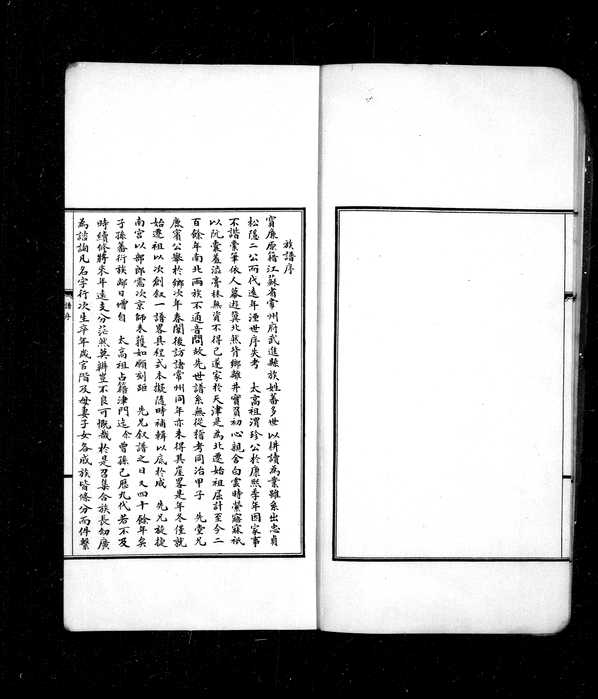 族譜序
寶廉原籍江蘇省常州府武進縣族姓蕃多世以耕讀為業雖系出忠貞
松隱二公而代遠年湮世序失考 太高祖渭珍公於康熙季年因家事
不諧橐筆依人暮遊冀北然背鄉離井實負初心親舍白雲時縈寤寐祇
以阮囊羞澁膏秣無資不得已遂家於天津是為北遷始祖屈計至今二
百餘年南北兩族不通音問故先世譜系無從稽考同治甲子 先堂兄
廉賓公舉於鄉次年春闈後訪諸常州同年亦未得其崖畧是年冬僅就
始遷祖以次創叙一譜畧具程式本擬隨時補輯以底於成 先兄旋捷
南宮以部郎需次京師未獲如願刻距 先兄叙譜之日又四十餘年矣
子孫蕃衍族鄙日增自 太高祖占籍津門迄余曾孫已歷九代若不及
時續修將來年遠支分茫然莫辨豈不良可慨哉於是召集合族長幼廣
為諮詢凡名字行次生卒年歲官階及母妻子女各成族皆條分而件繫
譜序